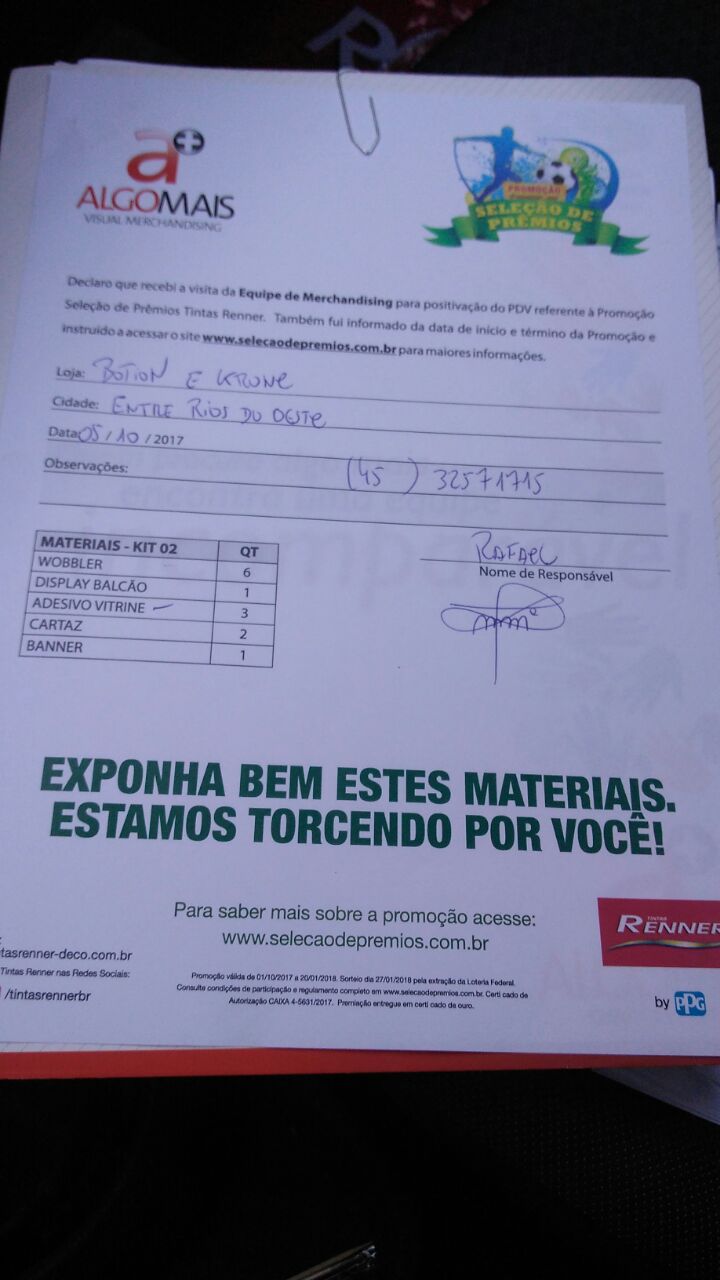 a+
ALGOMAIS
VISUAL MERCHANDISING
PROMOÇÃO
SELEÇÃO DE
PRÊMIOS
Declaro que recebi a visita da Equipe de Merchandising para positivação do PDV referente à Promoção
Seleção de Prêmios Tintas Renner. Também fui informado da data de início e término da Promoção e
instruído a acessar o site www.selecaodepremios.com.br para maiores informações.
Loja: BOTION E KRONE
Cidade: ENTRE RIOS DO OESTE
Data: 05/10/2017
Observações: (45) 32571715
MATERIAIS - KIT 02 QT
WOBBLER 6
DISPLAY BALCÃO 1
ADESIVO VITRINE 3
CARTAZ 2
BANNER 1
RAFAEL
Nome de Responsável
EXPONHA BEM ESTES MATERIAIS.
ESTAMOS TORCENDO POR VOCÊ!
Para saber mais sobre a promoção acesse:
www.selecaodepremios.com.br
tasrenner-deco.com.br
Tintas Renner nas Redes Sociais:
/tintasrennerbr
Promoção válida de 01/10/2017 a 20/01/2018. Sorteio dia 27/01/2018 pela extração da Loteria Federal.
Consulte condições de participação e regulamento completo em www.selecaodepremios.com.br. Certi cado de
Autorização CAIXA 4-5631/2017. Premiação entregue em certi cado de ouro.
TINTAS
RENNER
by PPG